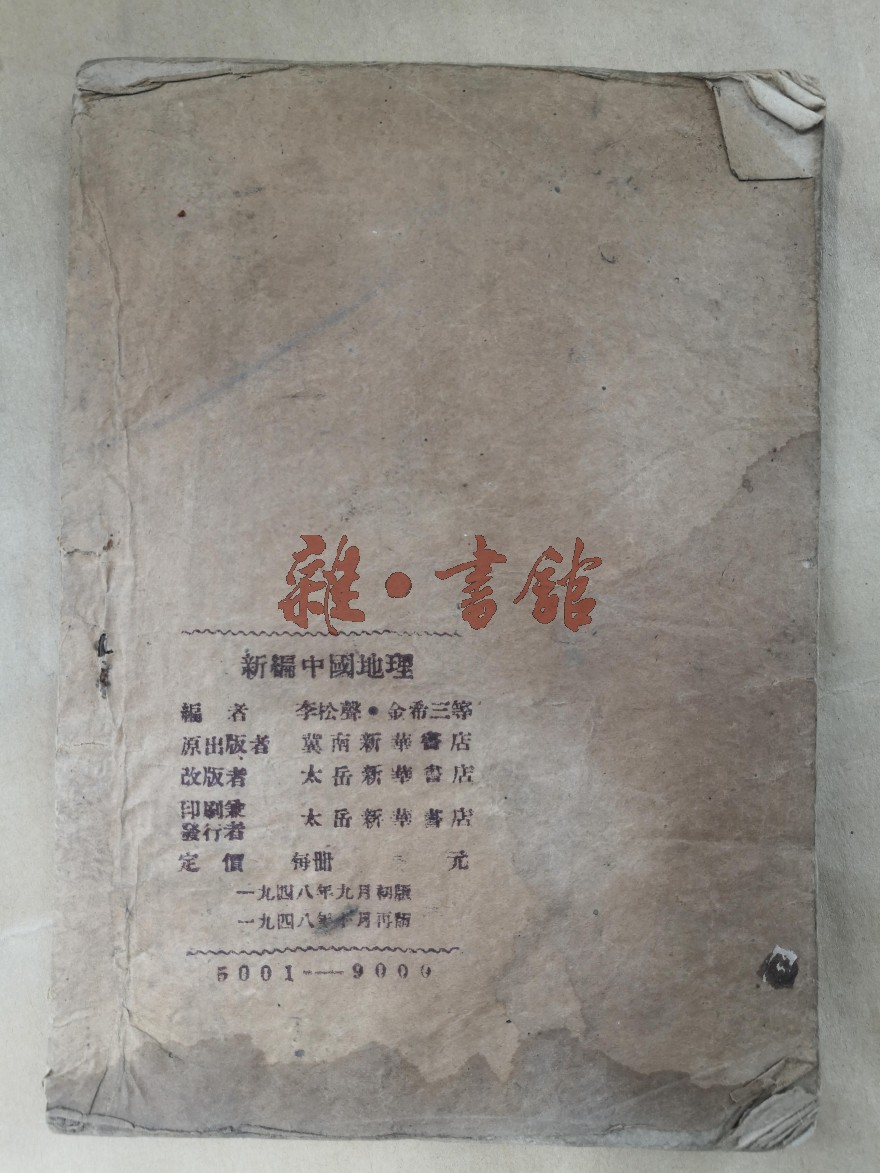 雜·書館
新編中國地理
編者 李松聲·金希三等
原出版者 冀南新華書店
改版者 太岳新華書店
印刷兼發行者 太岳新華書店
定價 每冊 元
一九四八年九月初版
一九四八年十月再版
5001——9000